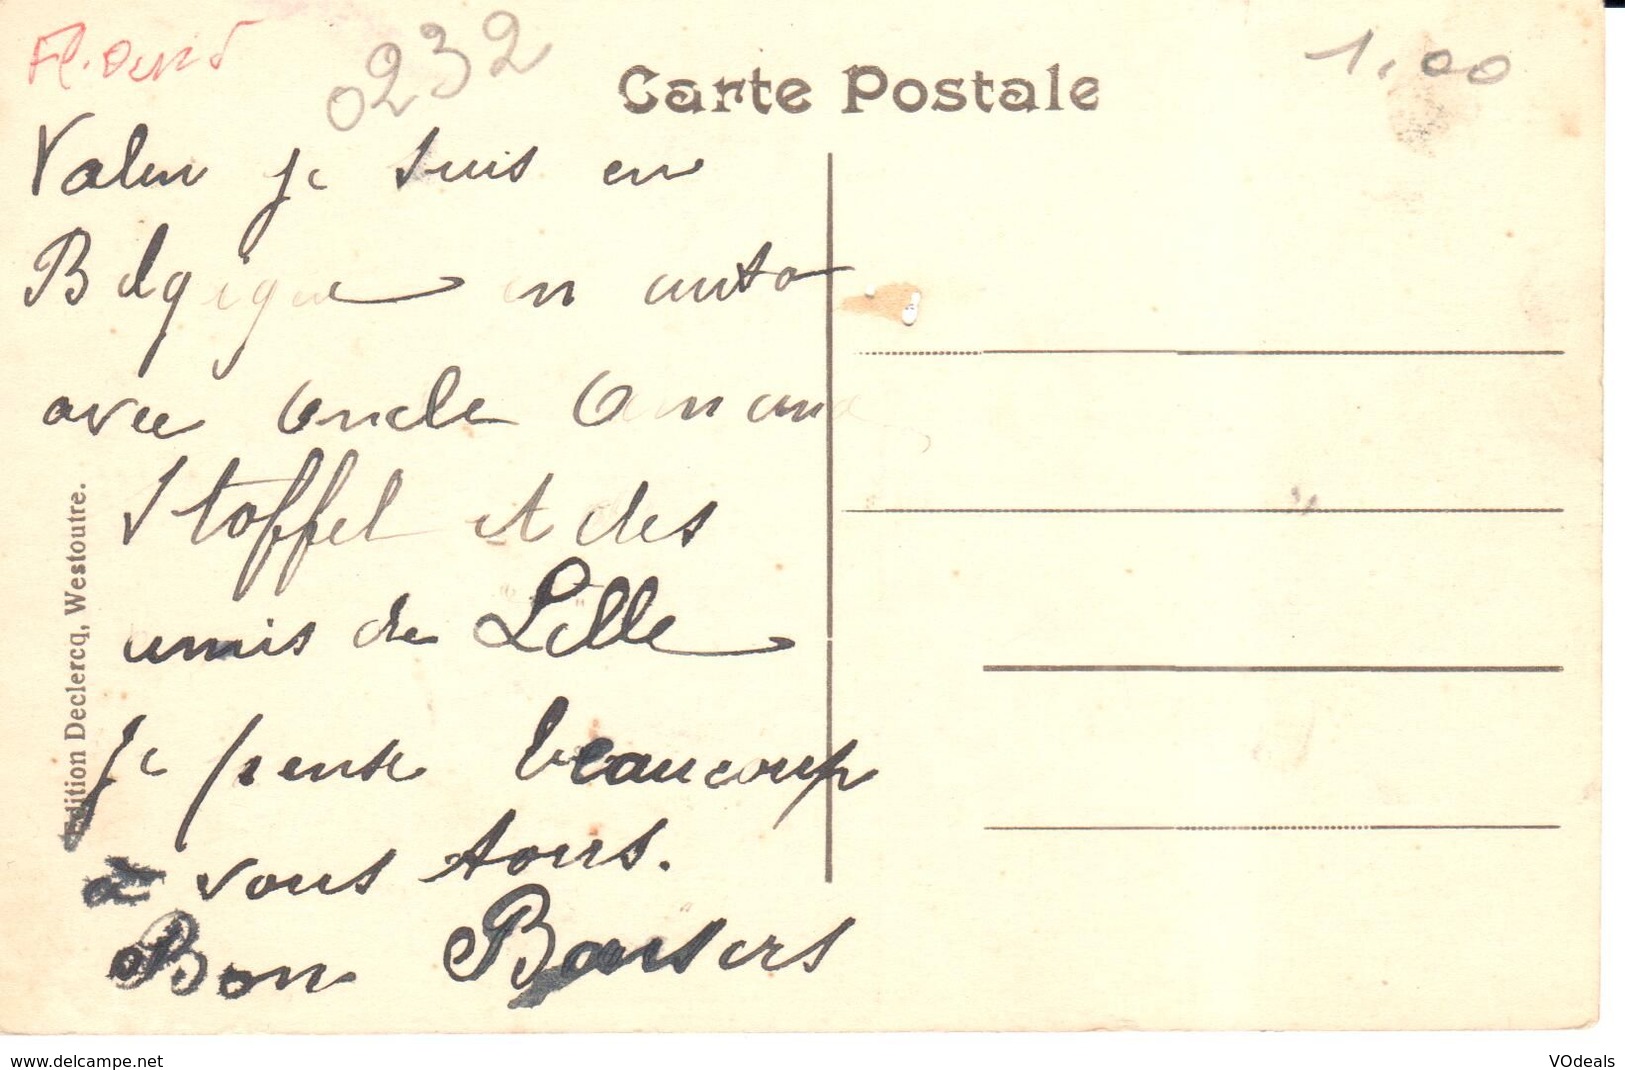 Fl. Occid
0232
1,00
Carte Postale
je suis en
Belgique en auto
avec Oncle Amand
Stoffel et des
amis de Lille
je pense beaucoup
à vous tous.
Bon Baisers
Edition Declercq, Westoutre.
www.delcampe.net
VOdeals